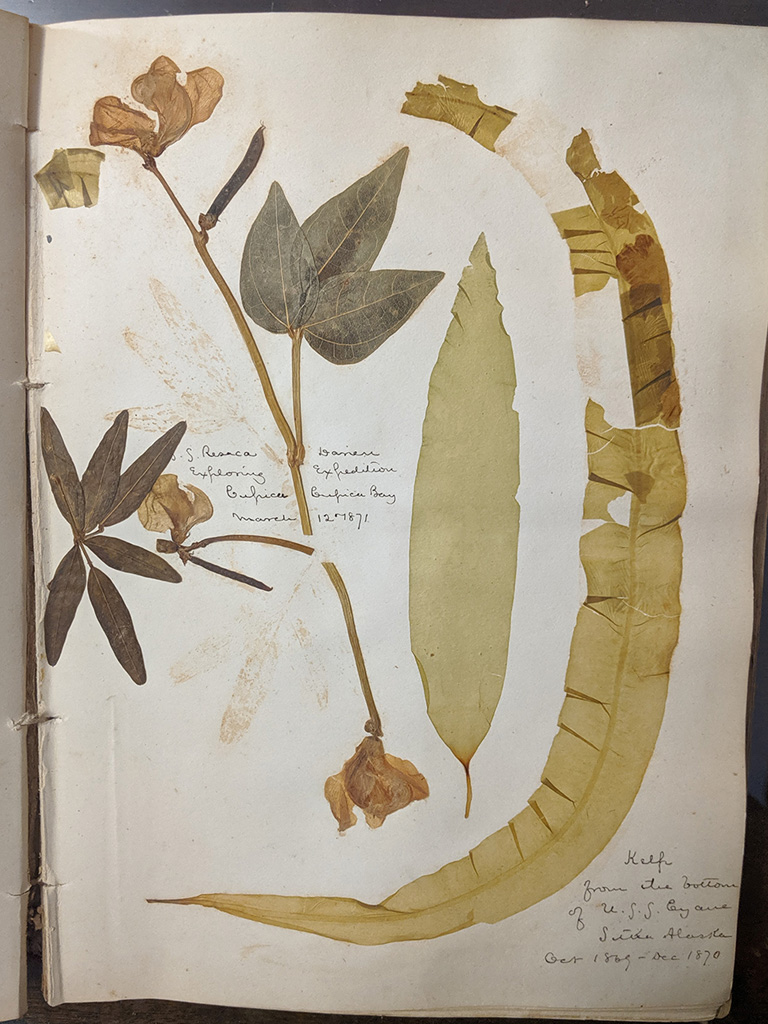 S. S. Resaca Darien
Exploring Expedition
Cupica Cupica Bay
March 12th 1871
Kelp
from the bottom
of U.S.S. Cyane
Sitka Alaska
Oct 1869 - Dec 1870